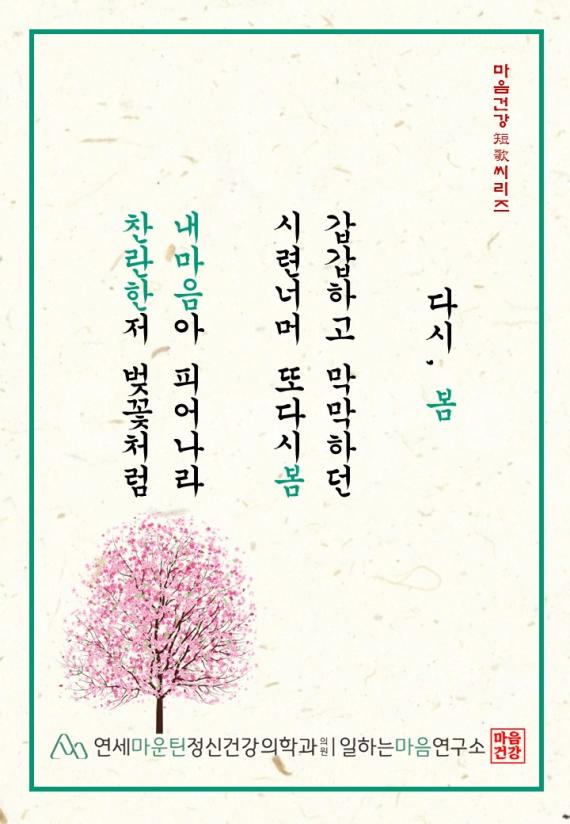 마음건강 短歌 씨리즈
다시, 봄
갑갑하고 막막하던
시련너머 또다시봄
내마음아 피어나라
찬란한저 벚꽃처럼
연세마운틴정신건강의학과의원 | 일하는마음연구소
마음
건강